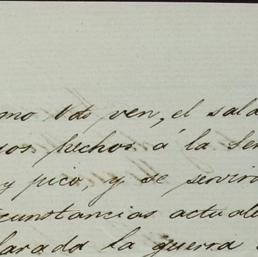 mo Vds ven, el sala
os hechos á la Se
y pico, y se servir
cunstancias actuale
larada la guerra